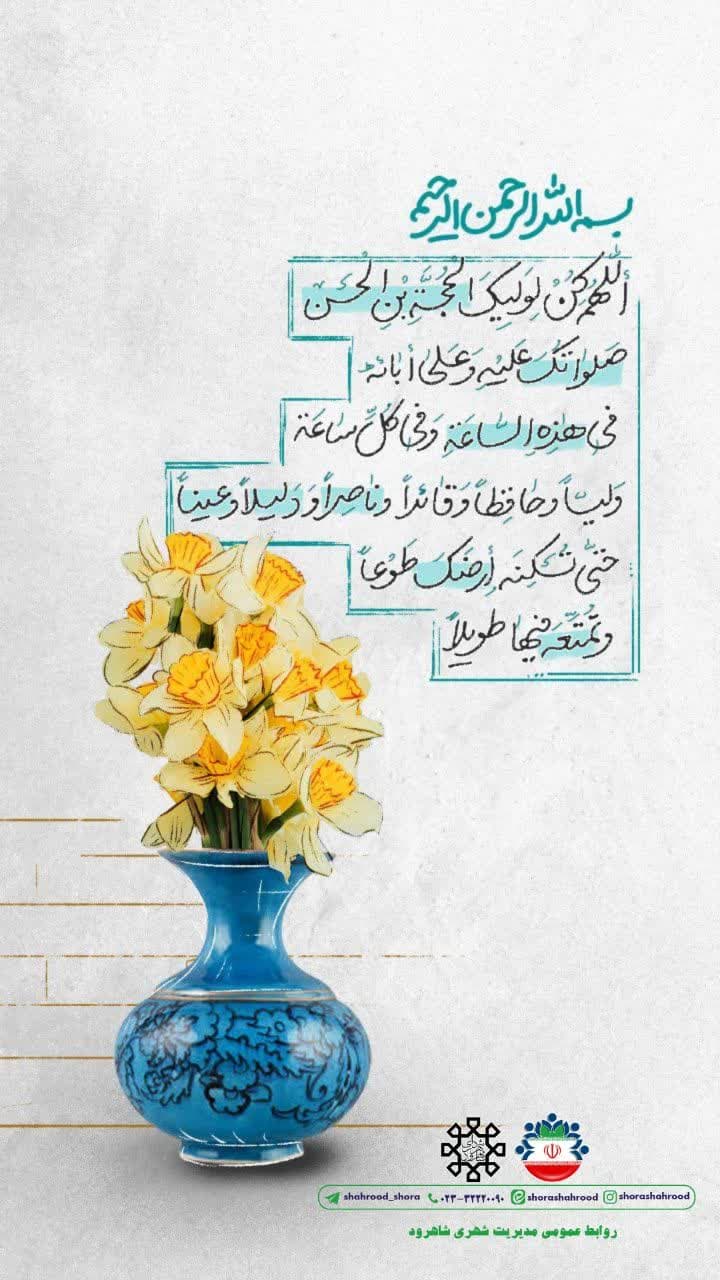 بسم الله الرحمن الرحیم
أَللّٰهُمَّ كُنْ لِوَلِيِّكَ الْحُجَّةِ بْنِ الْحَسَنِ
صَلَواتُكَ عَلَيْهِ وَعَلىٰ آبائه
فِي هٰذِهِ السّاعَةِ وَفي كُلِّ ساعَة
وَلِيّاً وحافِظاً وَقائداً وناصِراً وَ دَليلاً وعيناً
حَتّىٰ تُسْكِنَه أرضَكَ طَوْعاً
وتُمَتِّعَهُ فيها طويلاً
shahrood_shora ۰۲۳-۳۲۲۲۰۰۹۰ shorashahrood shorashahrood
روابط عمومی مدیریت شهری شاهرود